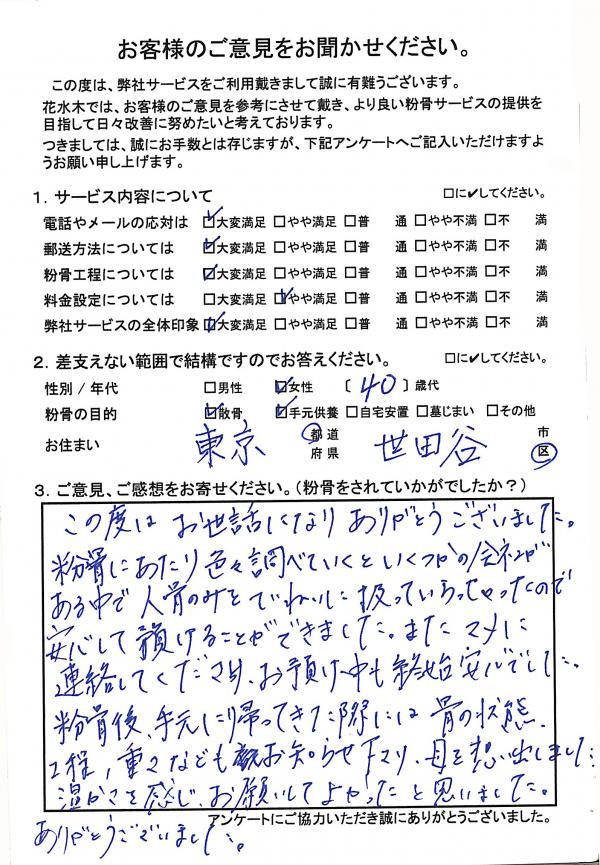 お客様のご意見をお聞かせください。
この度は、弊社サービスをご利用戴きまして誠に有難うございます。
花水木では、お客様のご意見を参考にさせて戴き、より良い粉骨サービスの提供を
目指して日々改善に努めたいと考えております。
つきましては、誠にお手数とは存じますが、下記アンケートへご記入いただけますよ
うお願い申し上げます。
1. サービス内容について □に✔してください。
電話やメールの応対は ☑大変満足 □やや満足 □普 通 □やや不満 □不 満
郵送方法については ☑大変満足 □やや満足 □普 通 □やや不満 □不 満
粉骨工程については ☑大変満足 □やや満足 □普 通 □やや不満 □不 満
料金設定については □大変満足 ☑やや満足 □普 通 □やや不満 □不 満
弊社サービスの全体印象 ☑大変満足 □やや満足 □普 通 □やや不満 □不 満
2. 差支えない範囲で結構ですのでお答えください。 □に✔してください。
性別 / 年代 □男性 ☑女性 〔 40 〕歳代
粉骨の目的 ☑散骨 ☑手元供養 □自宅安置 □墓じまい □その他
お住まい 東京 都道府県 世田谷 市区
3. ご意見、ご感想をお寄せください。(粉骨をされていかがでしたか?)
この度は お世話になり ありがとうございました。
粉骨にあたり色々調べていくと いくつかの会社が
ある中で 人骨のみを ていねいに 扱っていらっしゃったので
安心して 預けることができました。また マメに
連絡してくださり、お預け中も 終始 安心でした。
粉骨後、手元に帰ってきた際には 骨の状態、
工程、重さなども お知らせ下さり、母を想い出しました
温かさを感じ、お願いしてよかったと思いました。
ありがとうございました。
アンケートにご協力いただき誠にありがとうございました。